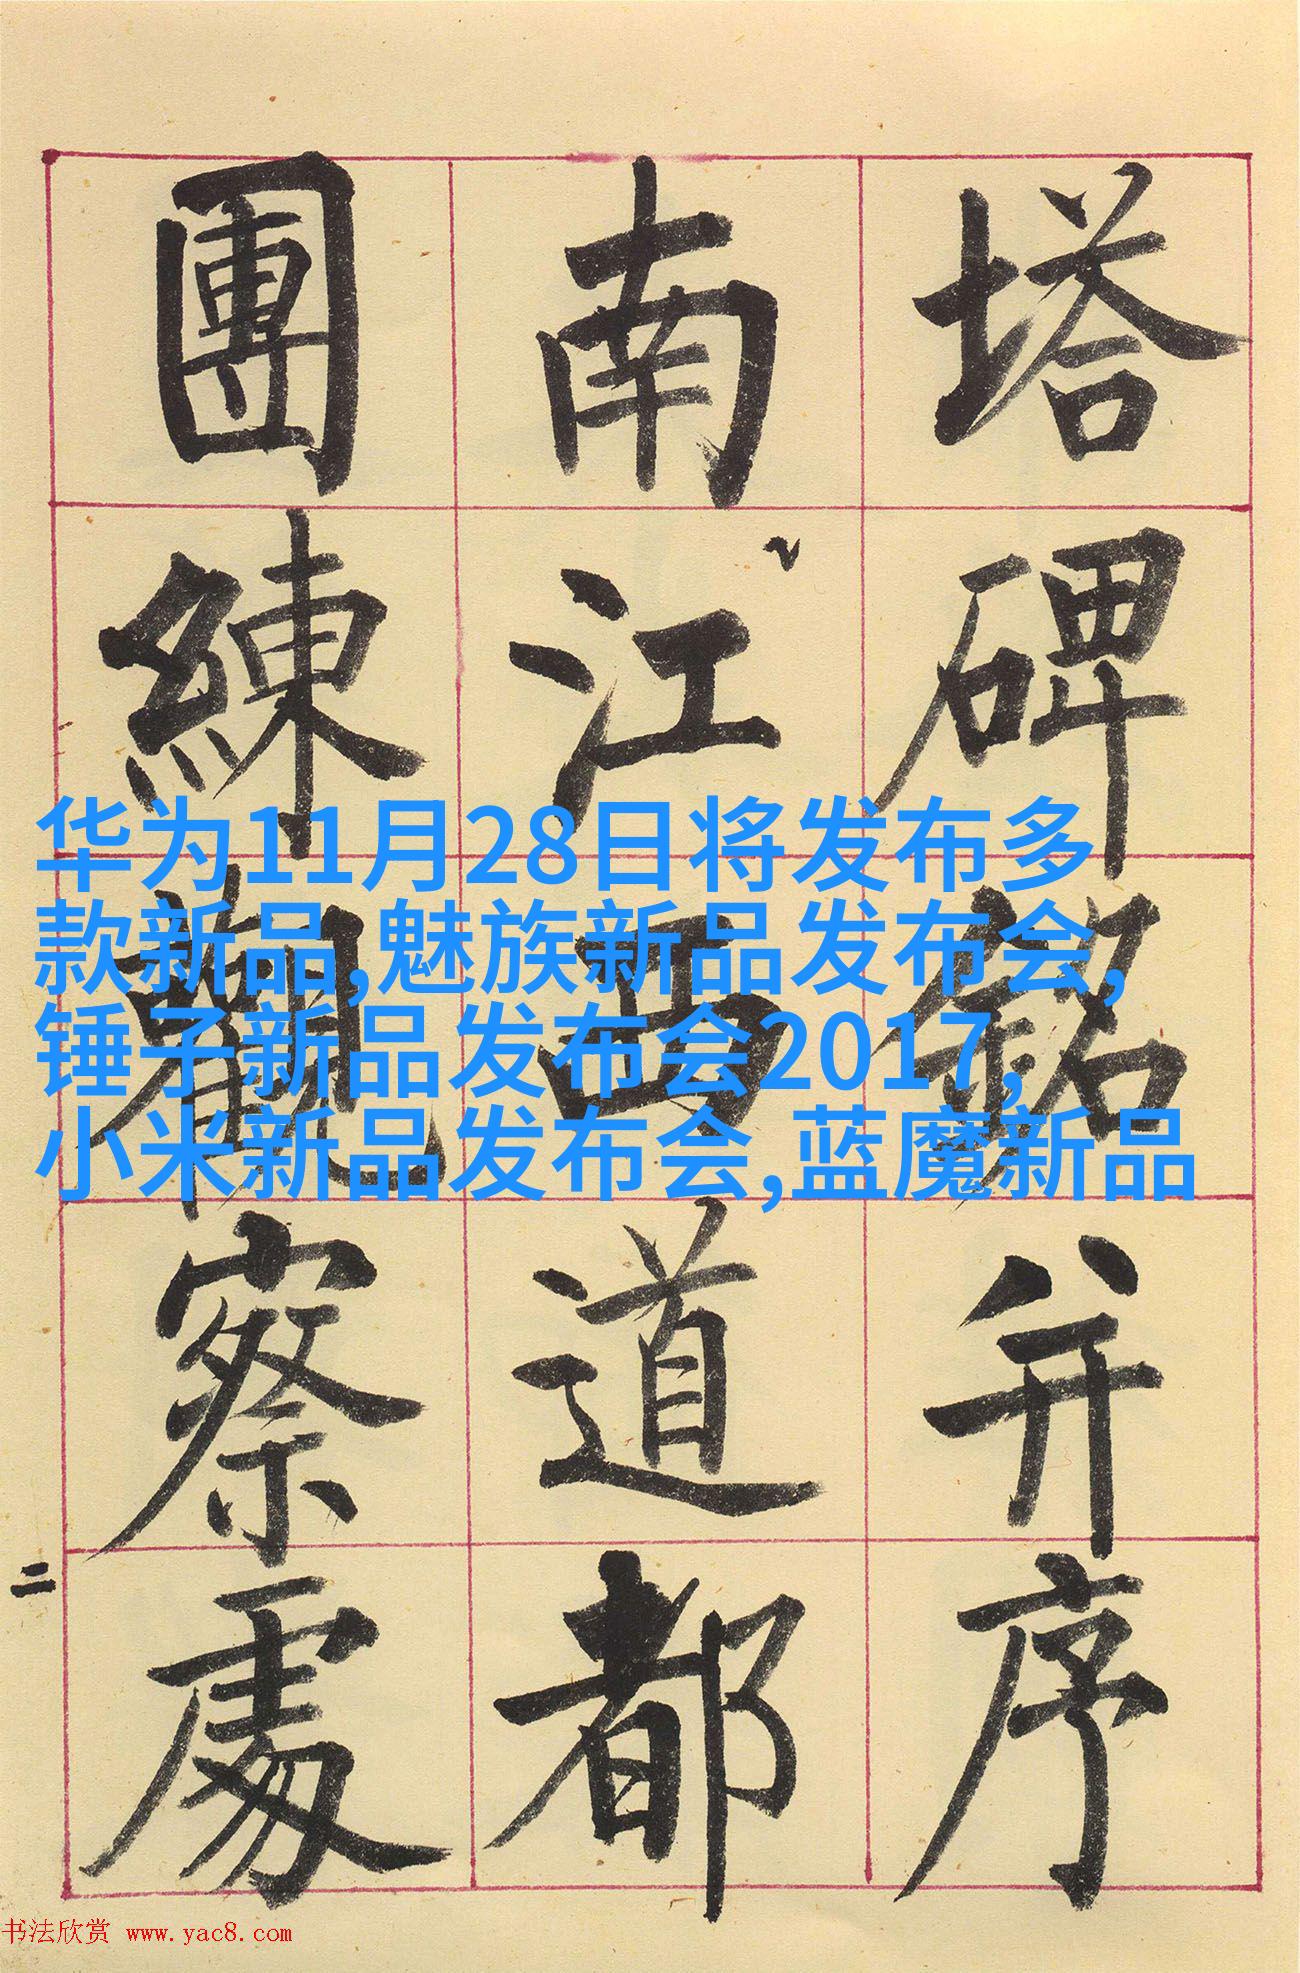 塔碑銘并序
南江西道都
團練觀察處
二
华为11月28日将发布多
款新品,魅族新品发布会,
锤子新品发布会2017,
小米新品发布会,蓝魔新品
书法欣赏 www.yac8.com